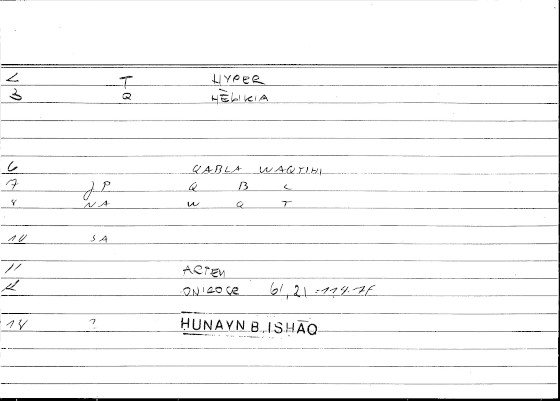 2 T HYPER
3 Q HĒLIKIA
6 QABLA WAQTIHI
7 JP Q B L
8 NA W Q T
10 SA
11 ARTEM
12 ONIROCR 61, 21 = 114.7f
14 ? HUNAYN B. ISHĀQ